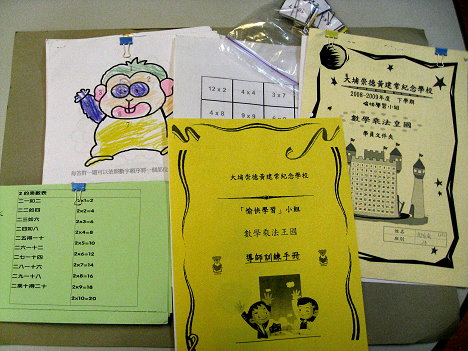 12 x 2
4 x 4
3 x 7
4 x 8
大埔崇德黃建常紀念學校
2008-2009年度 下學期
愉快學習小組
數學乘法王國
學員文件夾
姓名
班別
2 的乘數表
二一如二 2x1=2
二二如四 2x2=4
二三如六 2x3=6
二四如八 2x4=8
二五得一十 2x5=10
二六一十二 2x6=12
二七一十四 2x7=14
二八一十六 2x8=16
二九一十八 2x9=18
二十得二十 2x10=20
大埔崇德黃建常紀念學校
「愉快學習」小組
數學乘法王國
導師訓練手冊